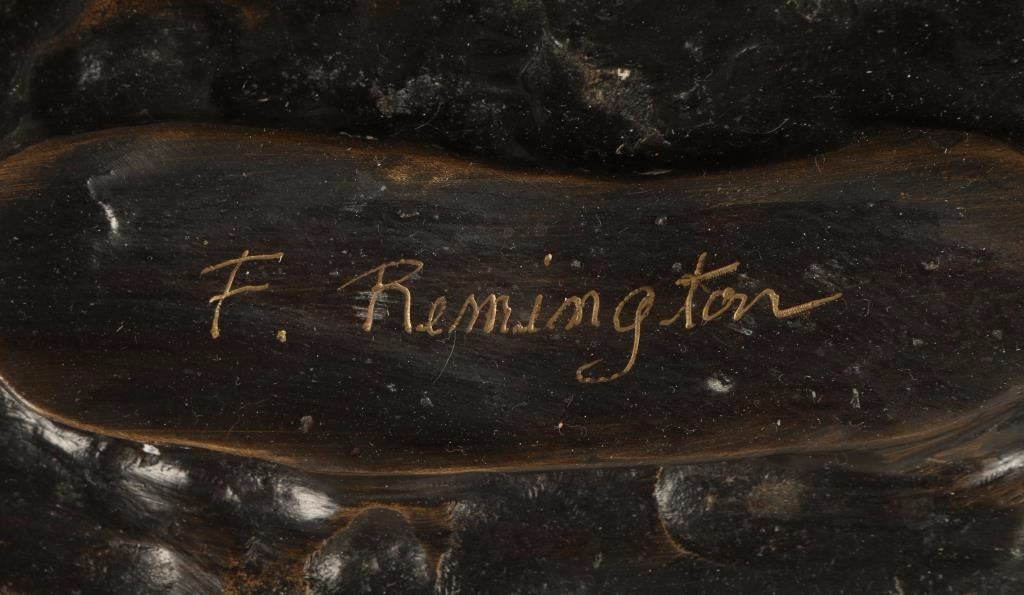 F. Remington